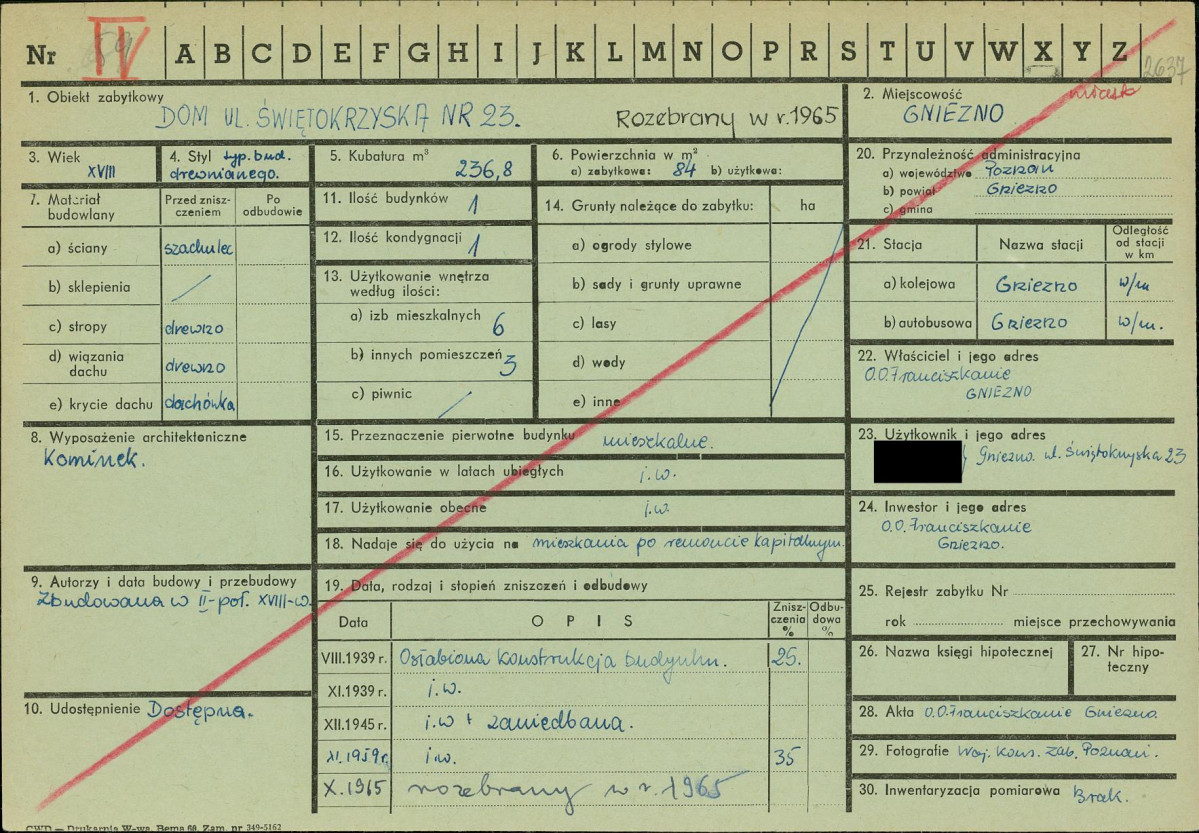 Nr IV 59 A B C D E F G H I J K L M N O P R S T U V W X Y Z 2637
1. Obiekt zabytkowy
DOM UL. ŚWIĘTOKRZYSKA NR 23. Rozebrany w r. 1965
2. Miejscowość miasto
GNIEZNO
3. Wiek
XVIII
4. Styl typ. bud.
drewnianego.
5. Kubatura m³
236,8
6. Powierzchnia w m²
a) zabytkowa: 84 b) użytkowa:
7. Materiał budowlany
Przed zniszczeniem
Po odbudowie
a) ściany szachulec
b) sklepienia /
c) stropy drewno
d) wiązania dachu drewno
e) krycie dachu dachówka
8. Wyposażenie architektoniczne
Kominek.
9. Autorzy i data budowy i przebudowy
Zbudowana w II-poł. XVIII-w.
10. Udostępnienie Dostępna.
11. Ilość budynków 1
12. Ilość kondygnacji 1
13. Użytkowanie wnętrza
według ilości:
a) izb mieszkalnych 6
b) innych pomieszczeń 3
c) piwnic /
14. Grunty należące do zabytku: ha
a) ogrody stylowe
b) sady i grunty uprawne
c) lasy
d) wody
e) inne
15. Przeznaczenie pierwotne budynku mieszkalne.
16. Użytkowanie w latach ubiegłych i.w.
17. Użytkowanie obecne i.w.
18. Nadaje się do użycia na mieszkania po remoncie kapitalnym.
19. Data, rodzaj i stopień zniszczeń i odbudowy
Data OPIS Zniszczenia % Odbudowa %
VIII.1939 r. Osłabiona konstrukcja budynku. 25.
XI.1939 r. i.w.
XII.1945 r. i.w + zaniedbana.
XI.1959 r. i.w. 35
X.1965 rozebrany w r. 1965
20. Przynależność administracyjna
a) województwo Poznań
b) powiat Gniezno
c) gmina
21. Stacja Nazwa stacji Odległość od stacji w km
a) kolejowa Gniezno w/m
b) autobusowa Gniezno w/m.
22. Właściciel i jego adres
O.O. Franciszkanie
GNIEZNO
23. Użytkownik i jego adres
Gniezno. ul. Świętokrzyska 23
24. Inwestor i jego adres
O.O. Franciszkanie
Gniezno.
25. Rejestr zabytku Nr
rok miejsce przechowywania
26. Nazwa księgi hipotecznej
27. Nr hipoteczny
28. Akta O.O. Franciszkanie Gniezno.
29. Fotografie Woj. Kons. Zab. Poznań.
30. Inwentaryzacja pomiarowa Brak.
CWD — Drukarnia W-wa, Bema 60. Zam. nr 349-5162